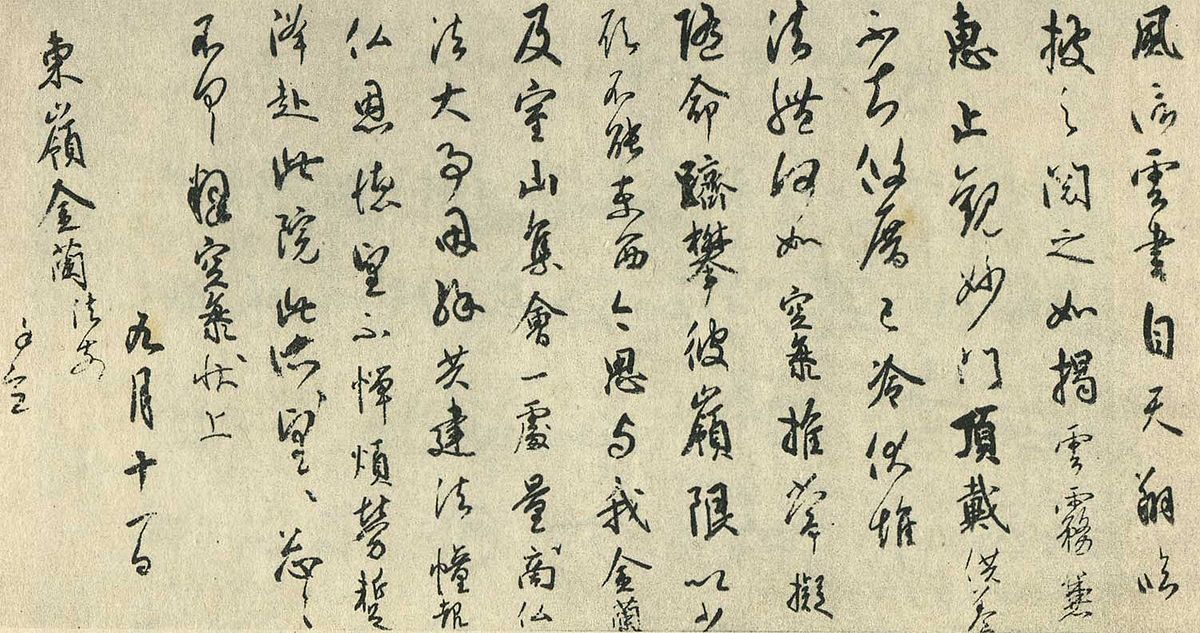 風信雲書自天翔臨
披之閲之如揭雲霧兼
惠止觀妙門頂戴供養
不知攸厝已冷伏惟
法體何如空海推常擬
隨命躋攀彼嶺限以少
願不能東西今思与我金蘭
及室山集會一處量商仏
法大事因緣共建法幢報
仏恩德望不憚煩勞蹔
降赴此院此所望〻〻忩〻
不具釋空海狀上
九月十一日
東嶺金蘭法前
謹空